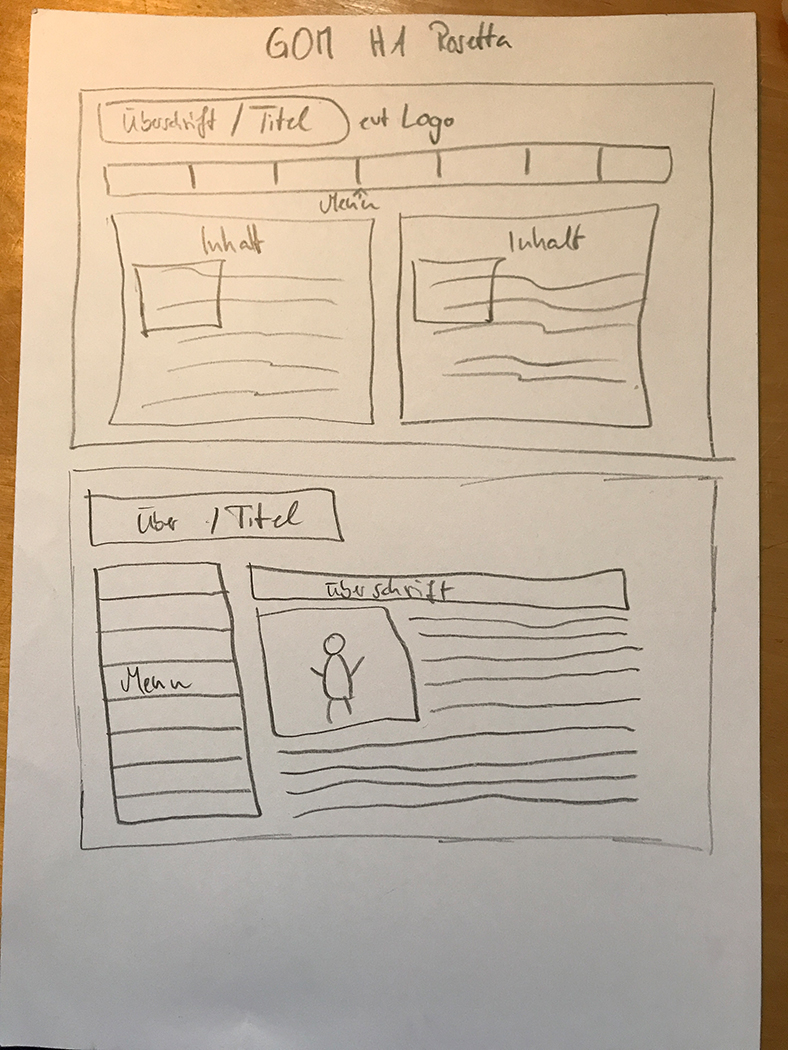 GOM HA Rosetta
Überschrift / Titel evt Logo
Menü
Inhalt Inhalt
Über / Titel
Überschrift
Menu